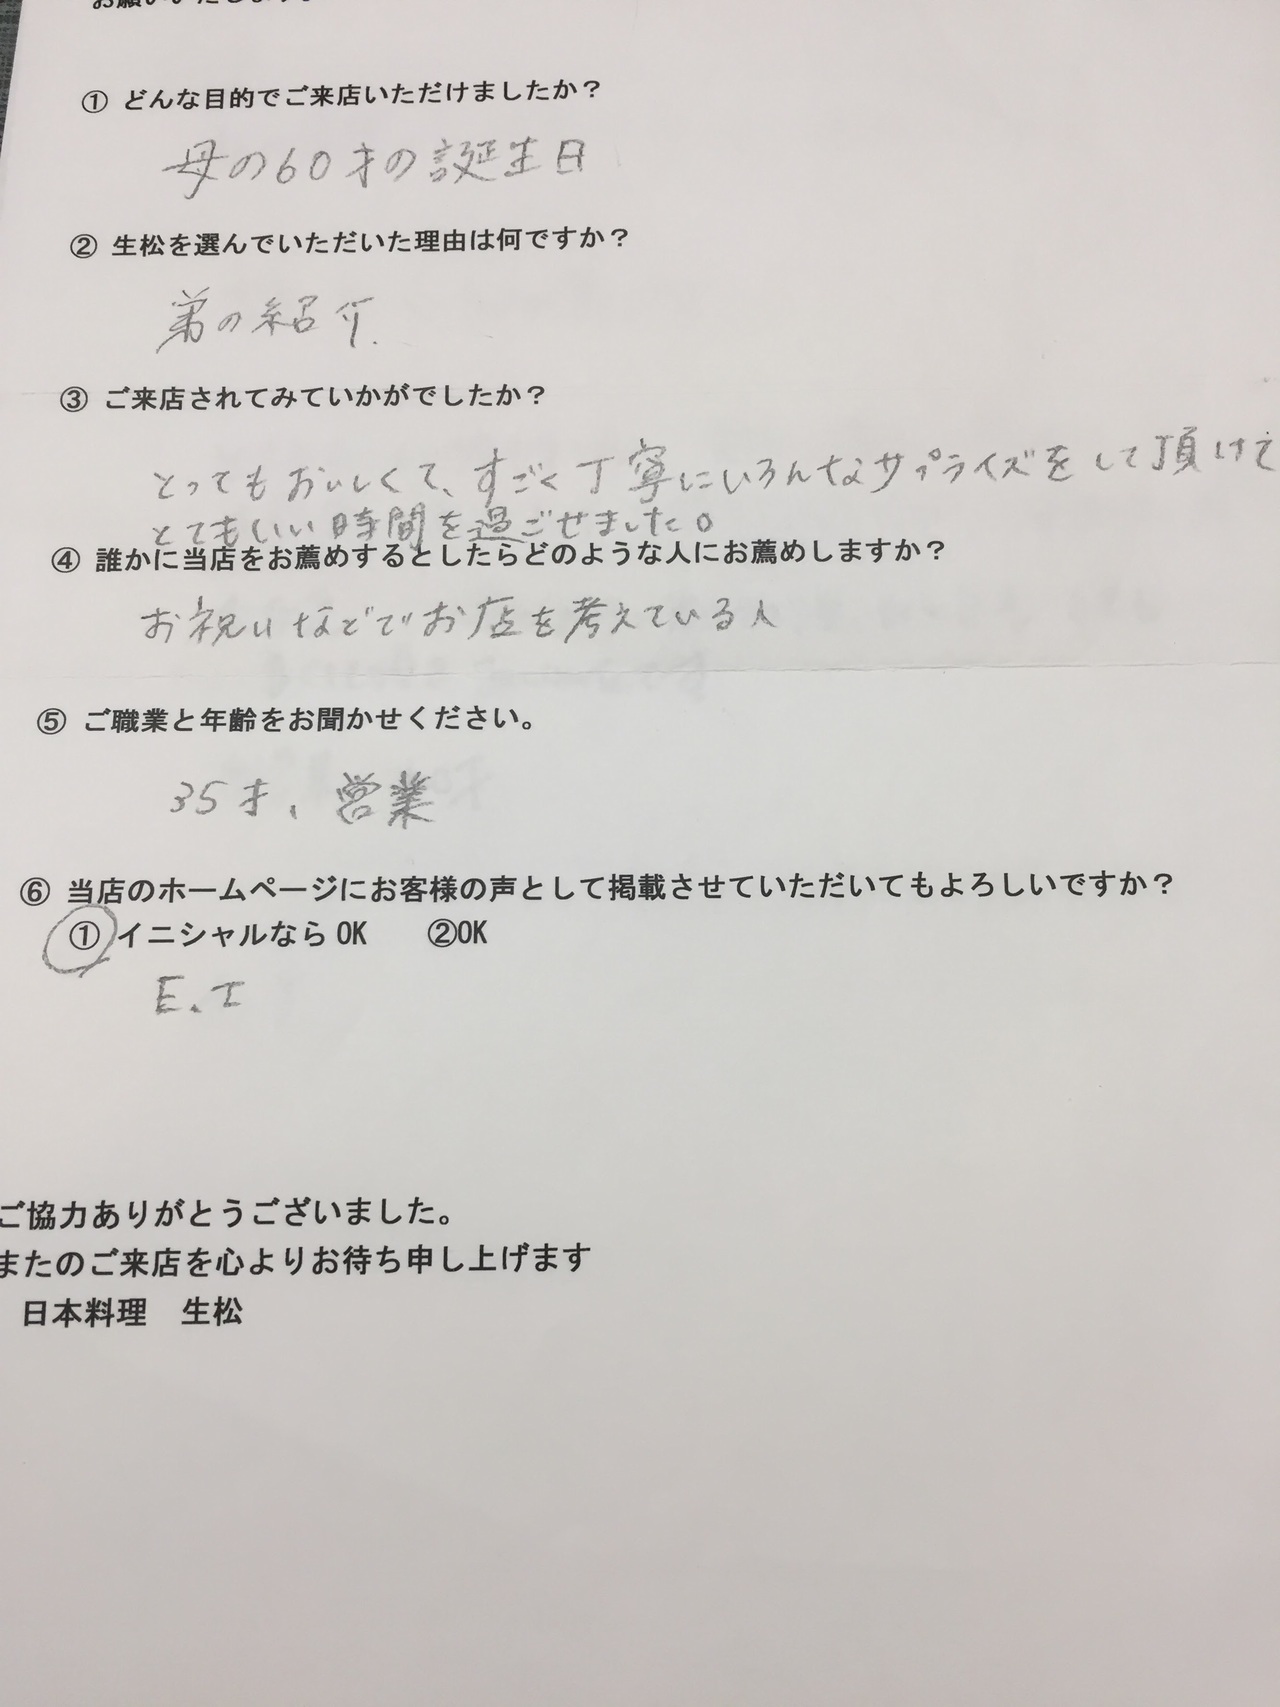 お願いいたします。
① どんな目的でご来店いただけましたか？
母の60才の誕生日
② 生松を選んでいただいた理由は何ですか？
弟の紹介.
③ ご来店されてみていかがでしたか？
とってもおいしくて、すごく丁寧にいろんなサプライズをして頂けて
とてもいい時間を過ごせました。
④ 誰かに当店をお薦めするとしたらどのような人にお薦めしますか？
お祝いなどでお店を考えている人
⑤ ご職業と年齢をお聞かせください。
35才、営業
⑥ 当店のホームページにお客様の声として掲載させていただいてもよろしいですか？
① イニシャルなら OK　②OK
E.I
ご協力ありがとうございました。
またのご来店を心よりお待ち申し上げます
日本料理　生松